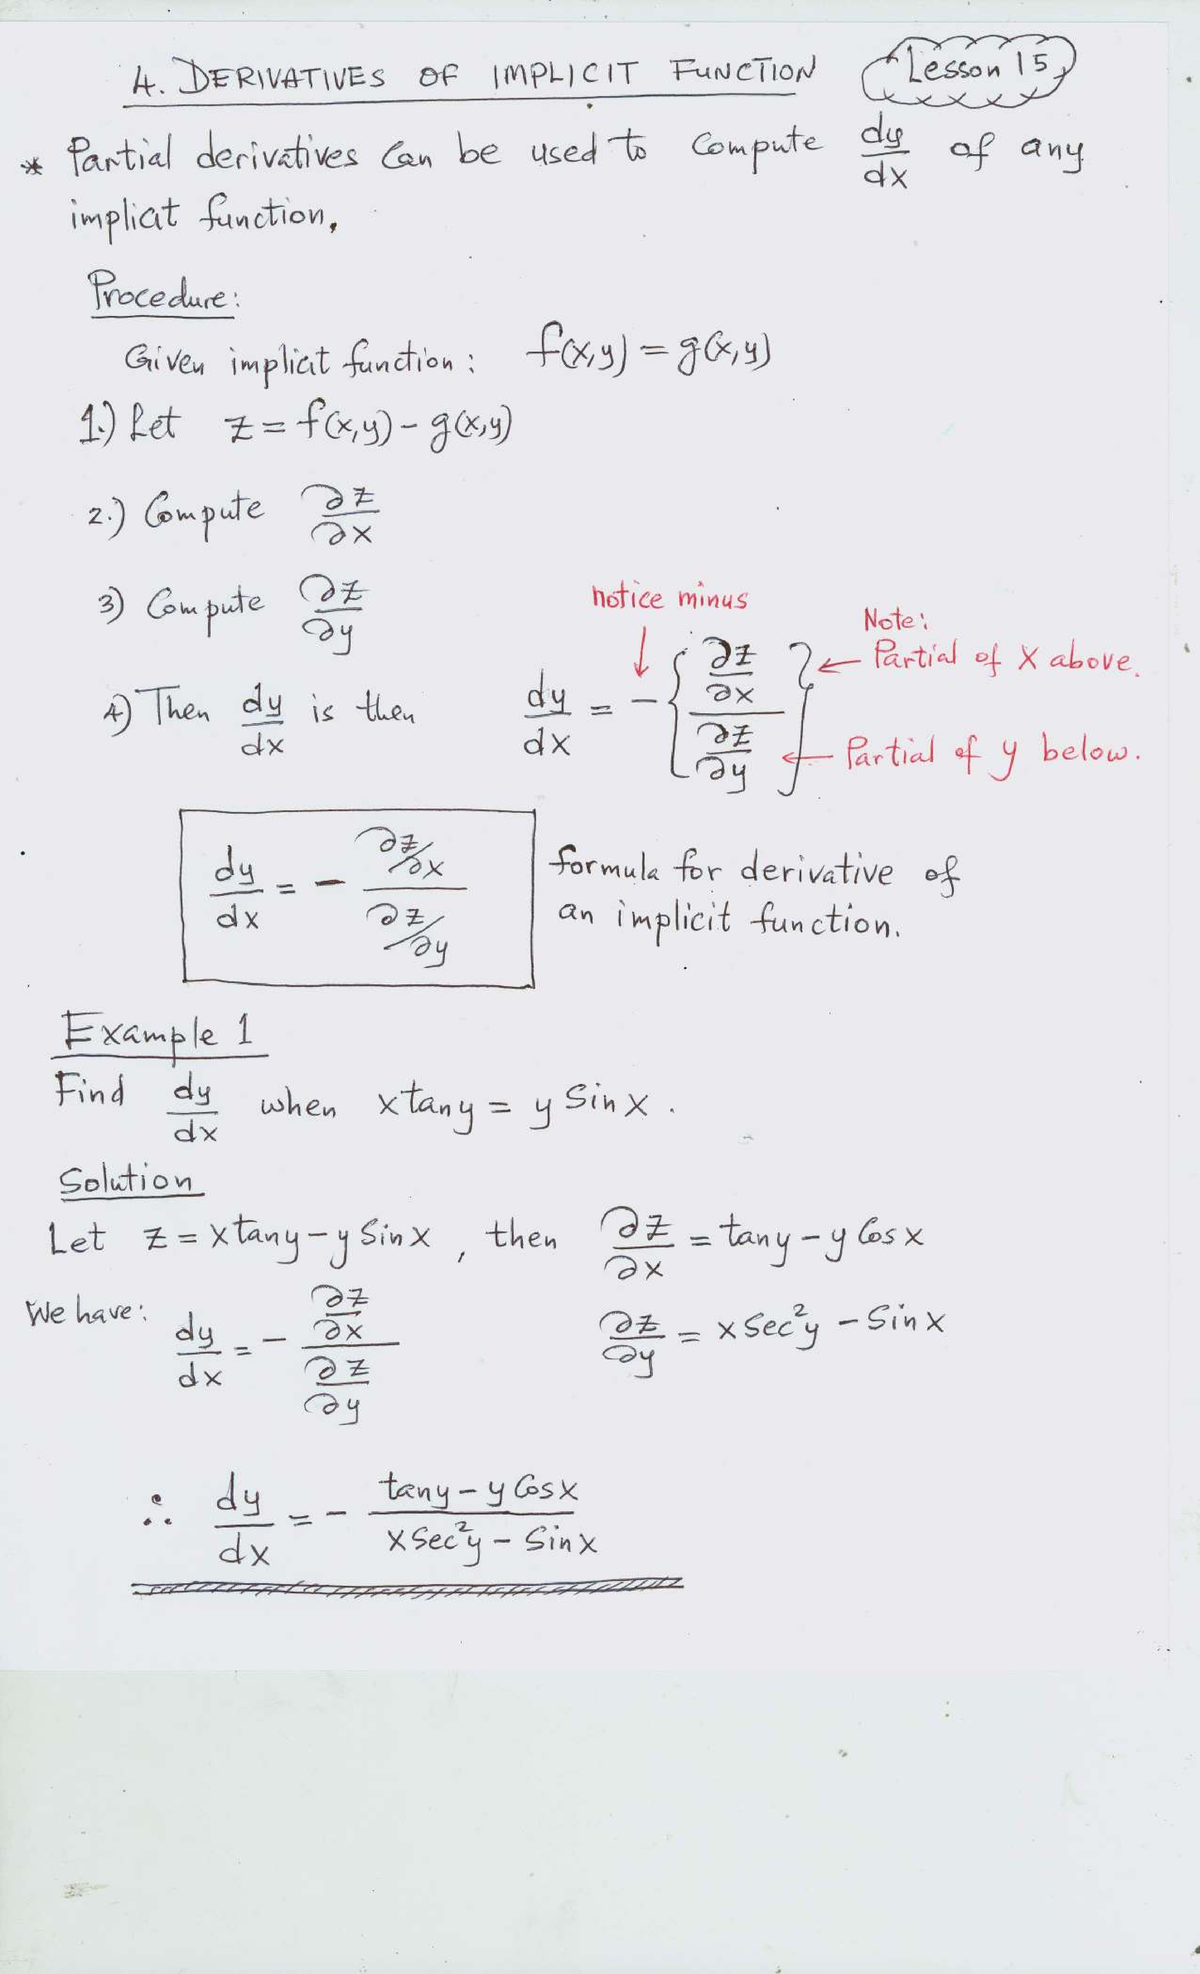 4. DERIVATIVES OF IMPLICIT FUNCTION
Lesson 15
* Partial derivatives can be used to compute dy/dx of any
implicit function.
Procedure:
Given implicit function: f(x,y) = g(x,y)
1.) Let z = f(x,y) - g(x,y)
2.) Compute ∂z/∂x
3) Compute ∂z/∂y
notice minus
Note:
4) Then dy/dx is then dy/dx = - { (∂z/∂x) / (∂z/∂y) }
← Partial of x above.
← Partial of y below.
dy/dx = - (∂z/∂x) / (∂z/∂y)
formula for derivative of
an implicit function.
Example 1
Find dy/dx when x tan y = y Sin x.
Solution
Let z = x tan y - y Sin x, then ∂z/∂x = tan y - y Cos x
We have: dy/dx = - (∂z/∂x) / (∂z/∂y)
∂z/∂y = x Sec²y - Sin x
∴ dy/dx = - (tan y - y Cos x) / (x Sec²y - Sin x)